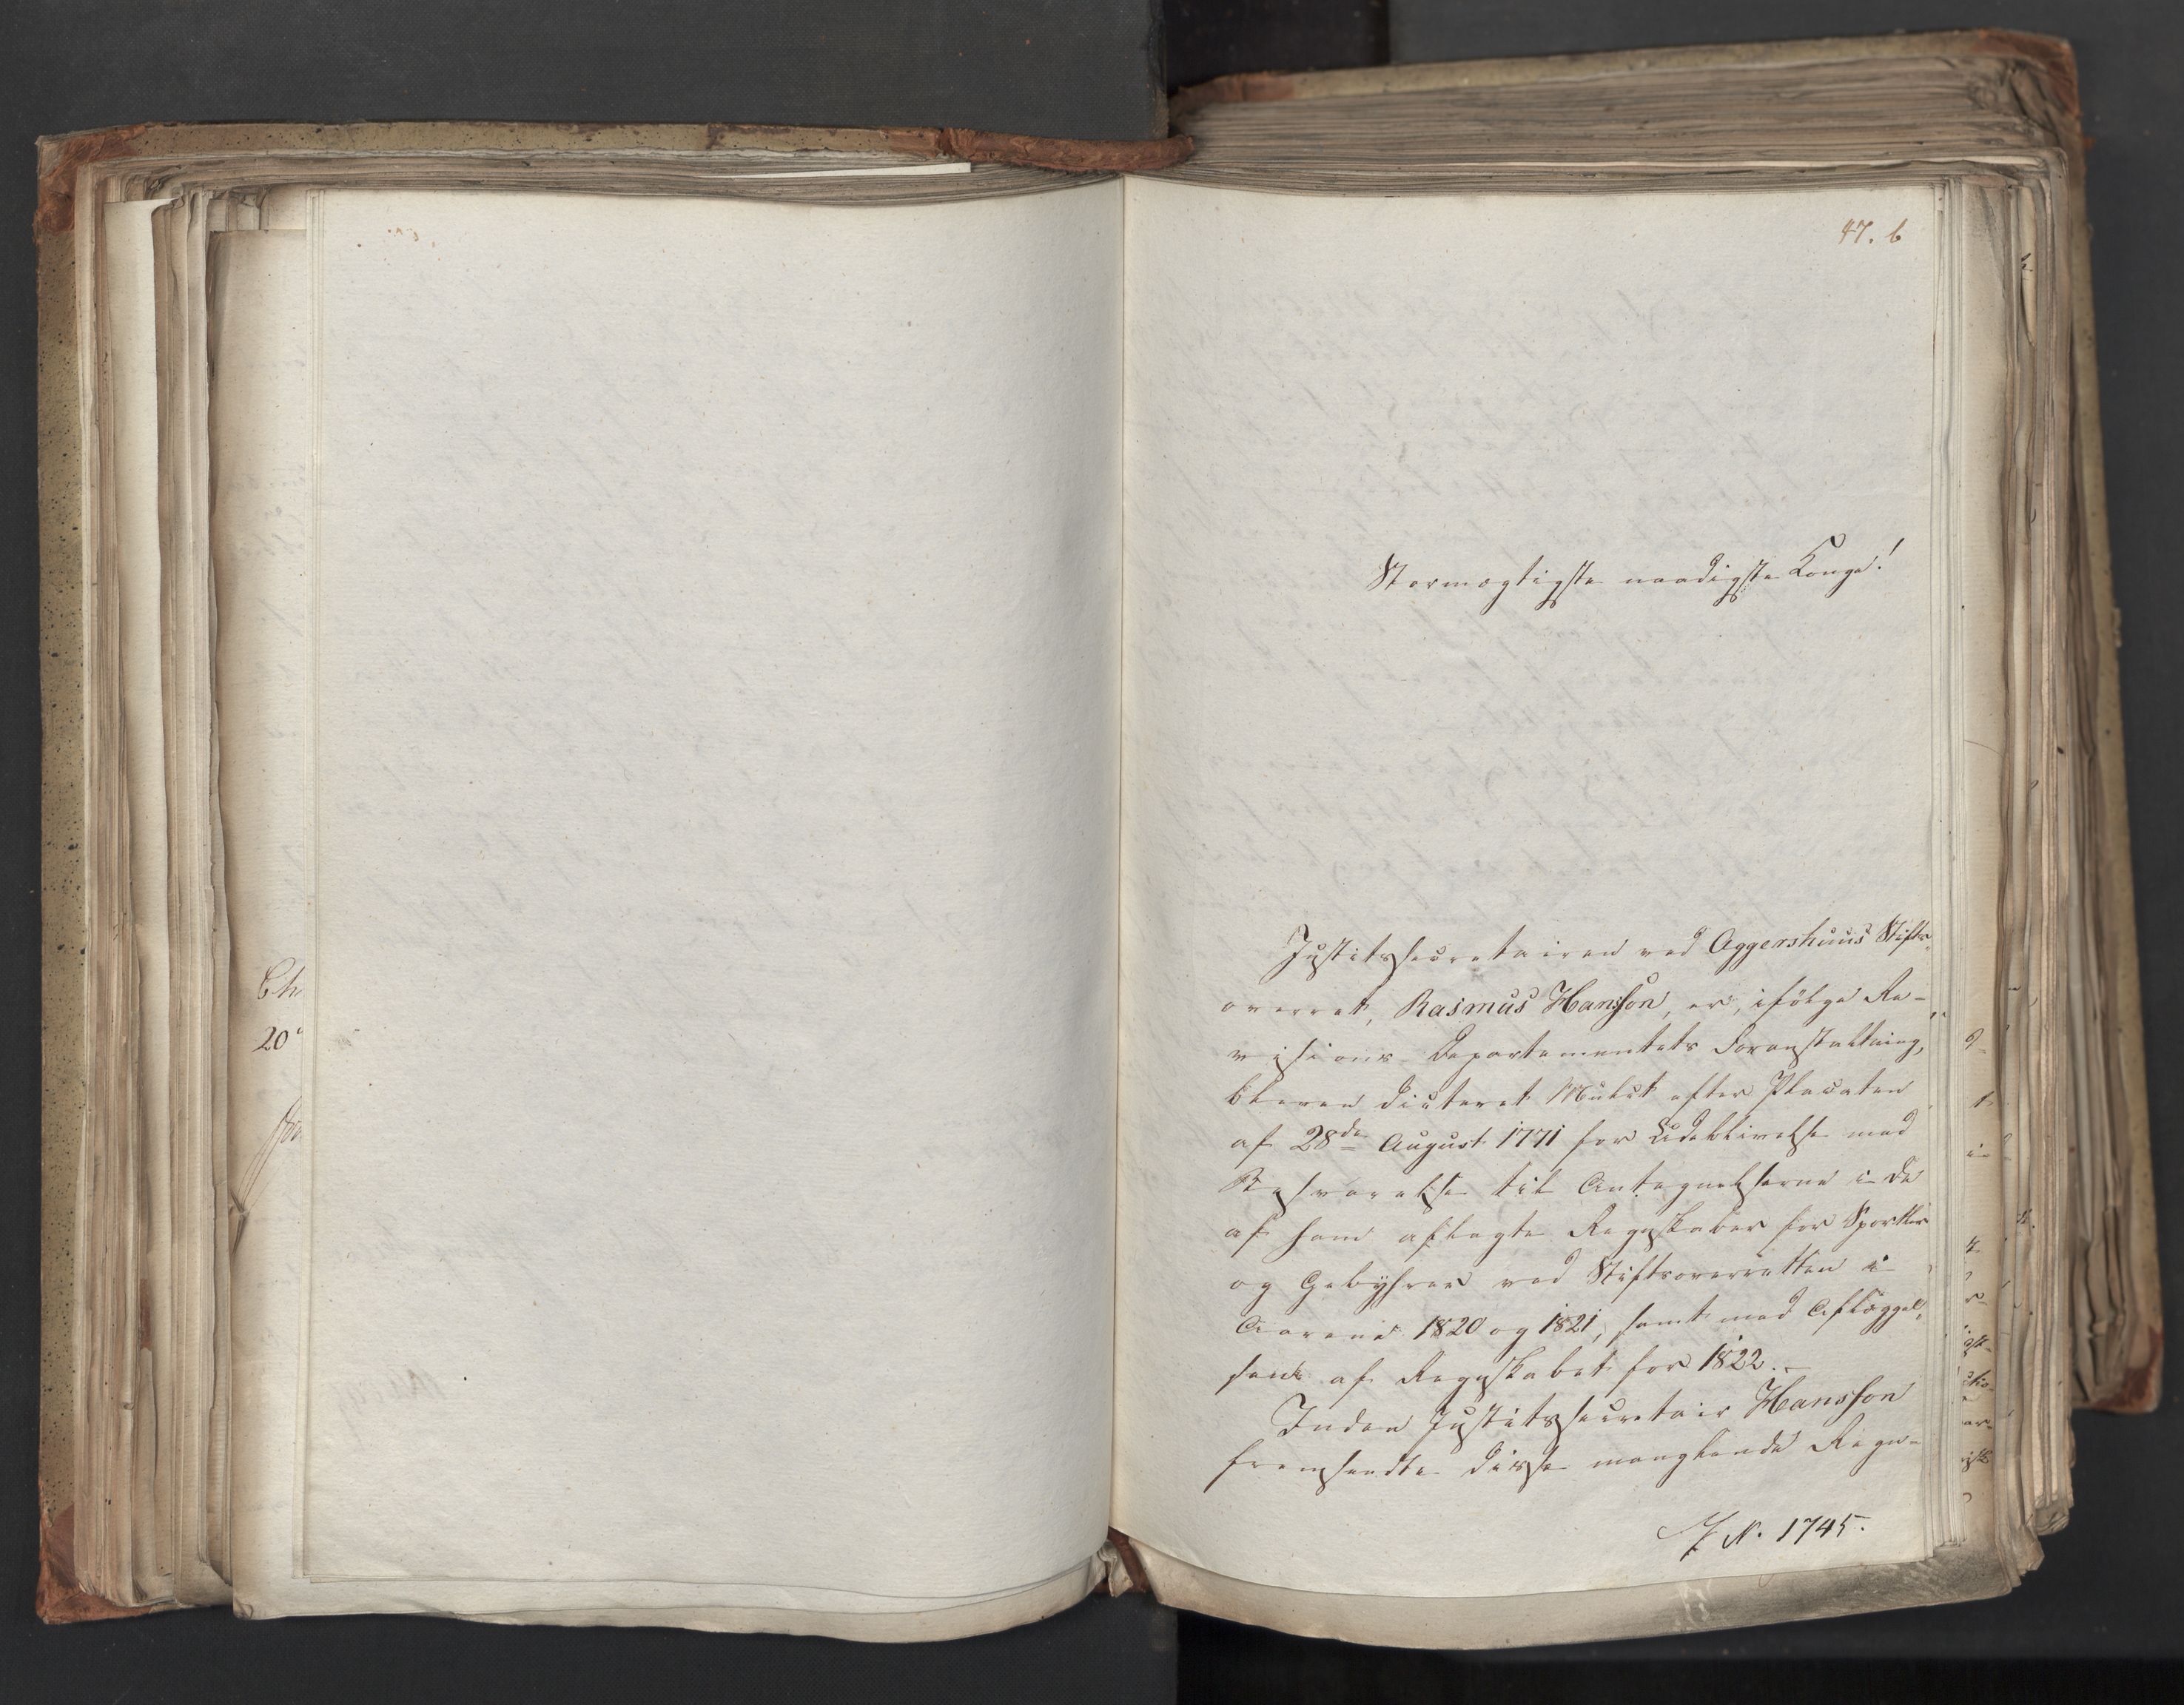 47. b
Stormægtigste naadigste Konge!
Justitssecretairen ved Aggershuus Stifts-
overret, Rasmus Hansson, er, ifölge Re-
visions-Departementets Foranstaltning,
bleven dicteret Mulct efter Placaten
af 28de August 1771 for Udeblivelse med
Besvarelse til Antegnelserne i de
af ham aflagte Regnskaber for Sportler
og Gebyhrer ved Stiftsoverretten i
Aarene 1820 og 1821, samt med Aflæggel-
sen af Regnskabet for 1822.-
Inden Justitssecretair Hansson
fremsendte disse manglende Regn-
N. 1745.